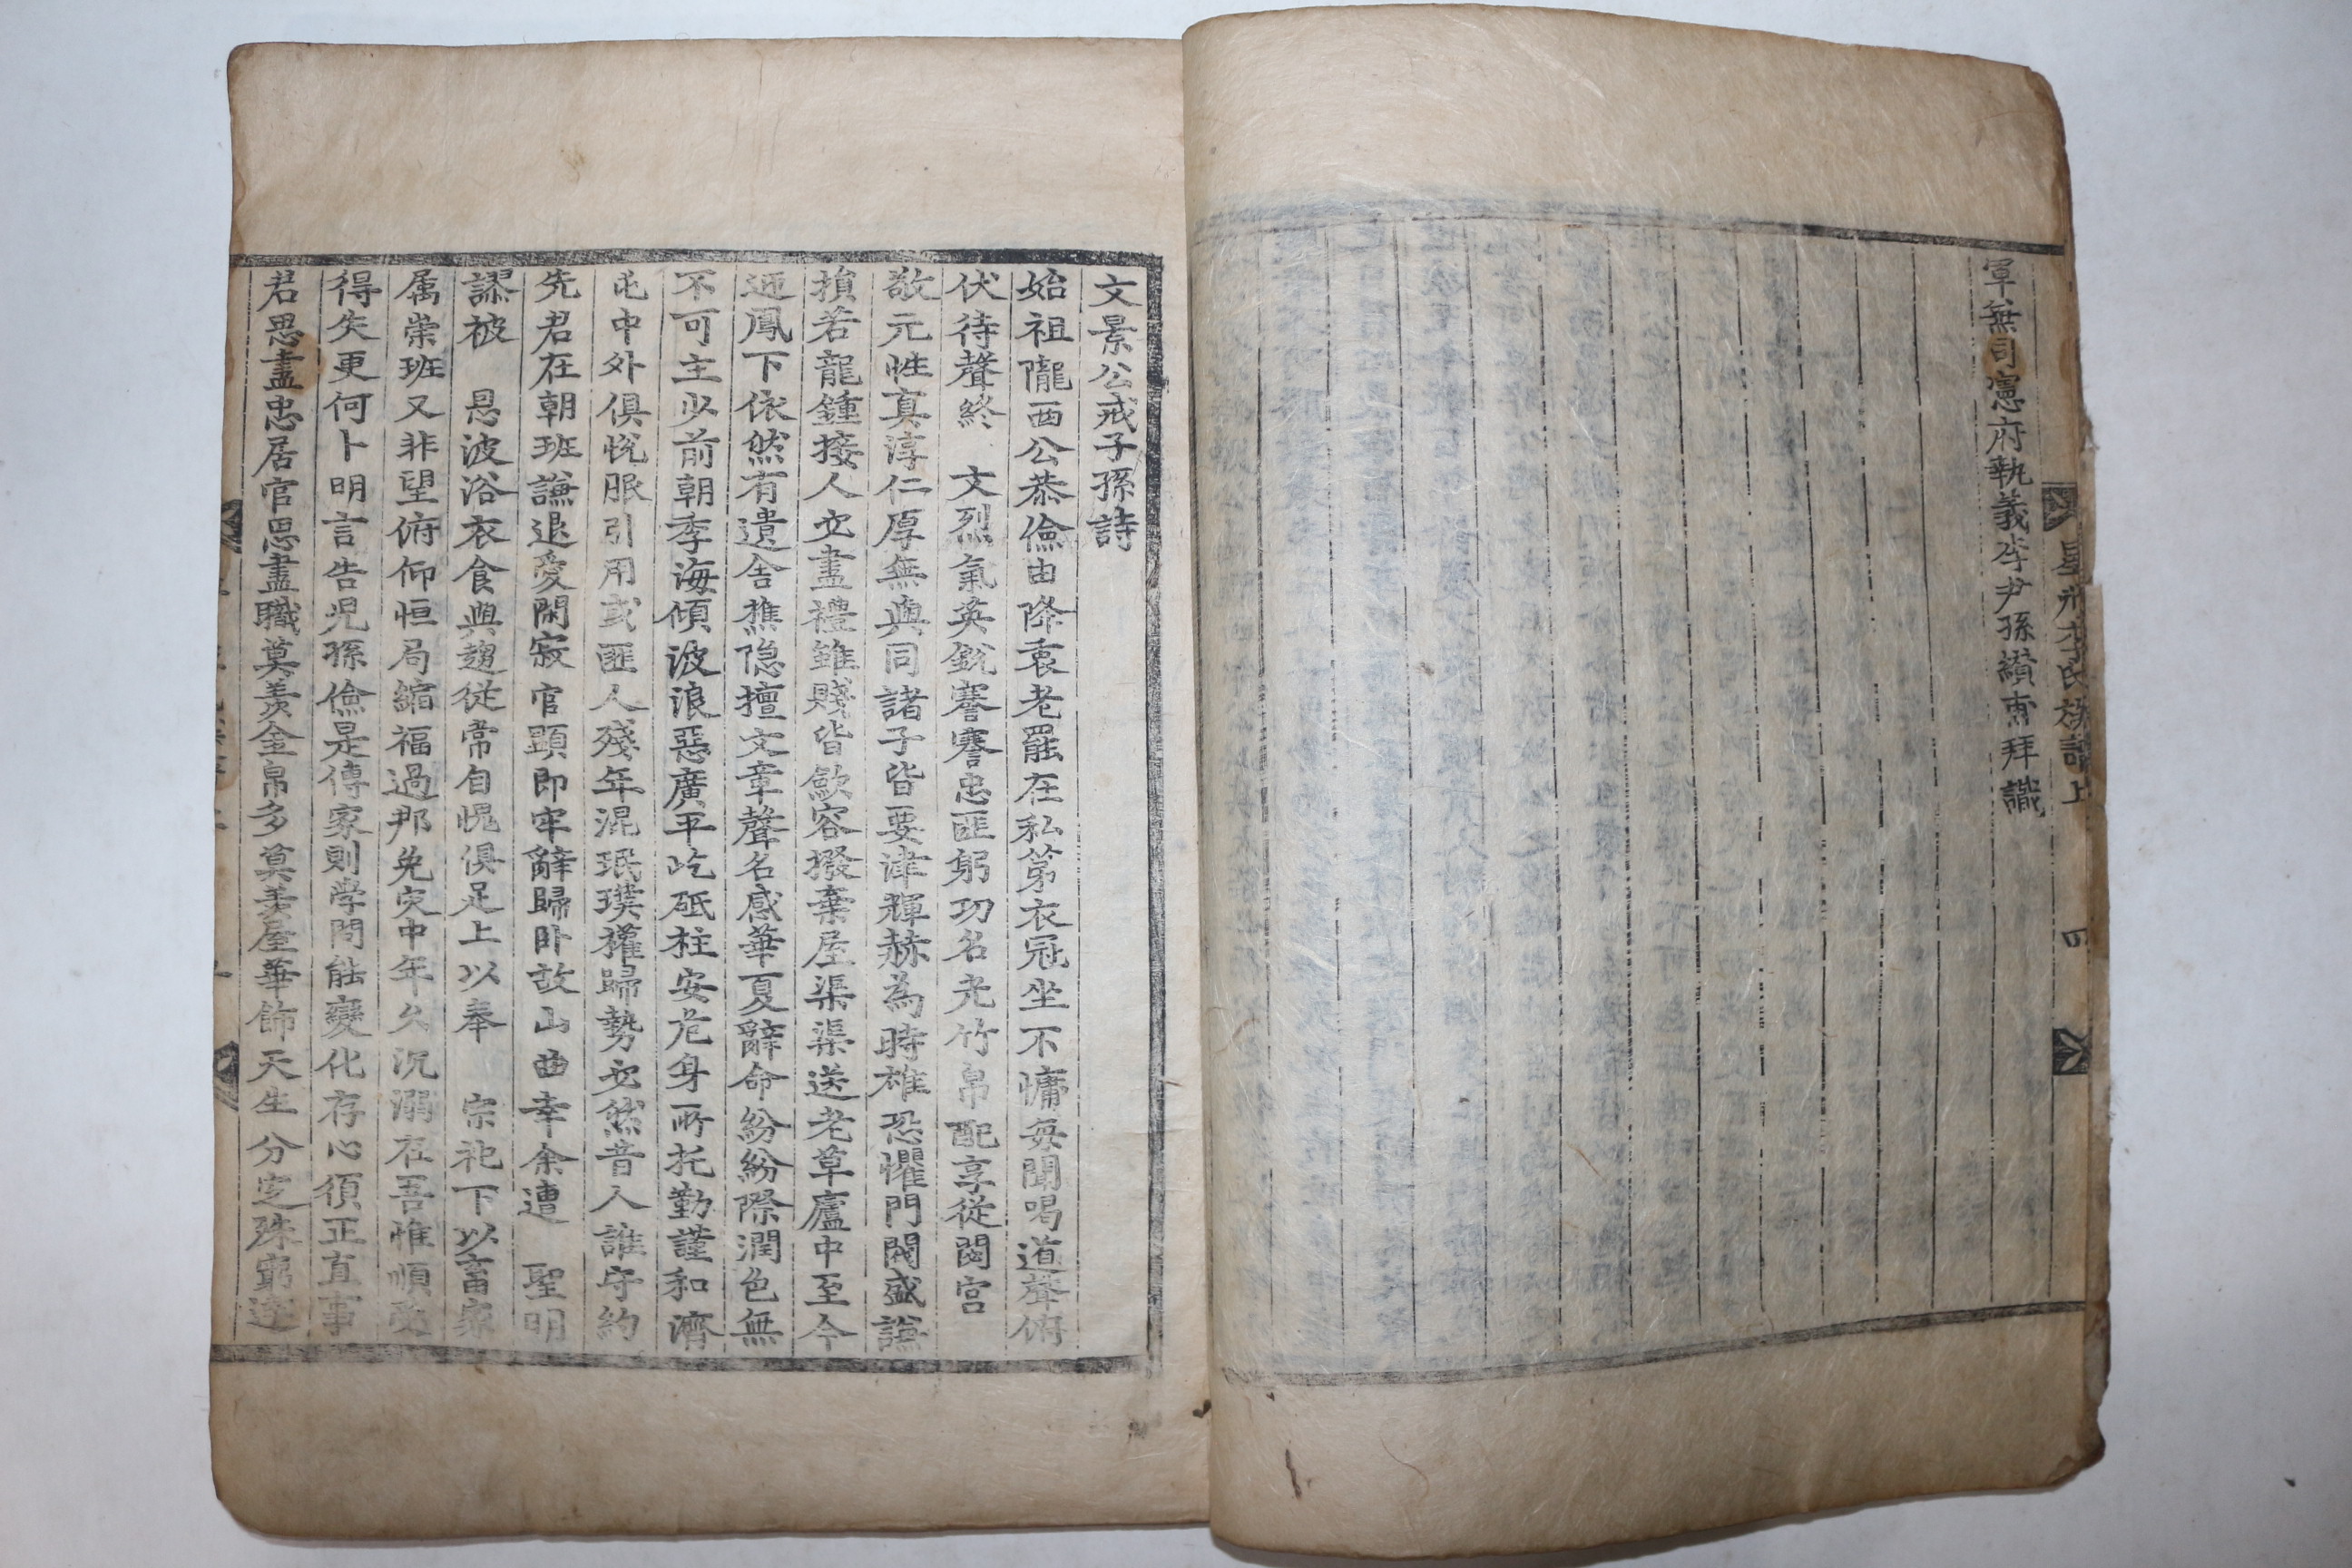 軍無司憲府執義李尹孫纉專拜識
星州李氏族譜上
四
文景公戒子孫詩
始祖隴西公恭儉由降衷老罷在私第衣冠坐不慵每聞喝道聲俯
伏待聲終 文烈氣英銳謇謇忠匪躬功名光竹帛配享從閟宮
敬元性真淳仁厚無與同諸子皆要津輝赫為時雄恐懼門閥盛謙
損若龍鍾接人必盡禮雖賤皆斂容撥棄屋渠渠送老草廬中至今
逦鳳下依然有遺舎樵隐擅文章聲名感華夏辭命紛紛際潤色無
不可主以前朝季海傾波浪惡廣平屹砥柱安危身所托勤謹和濟
屯中外俱悅服引用或匪人殘年混珉璞權歸勢必然昔人誰守約
先君在朝班謙退愛閑寂官顕即牢辭歸卧故山曲幸余遭 聖明
謬被 恩波浴衣食與趨従常自愧俱足上以奉 宗祀下以畜家
属崇班又非望俯仰恒局縮福過那免灾中年久沉溺在吾惟順受
得失更何卜明言告児孫儉是傳家則学問能變化存心須正直事
君思盡忠居官思盡職莫羨金帛多莫羨屋華飾天生分定殊窮達